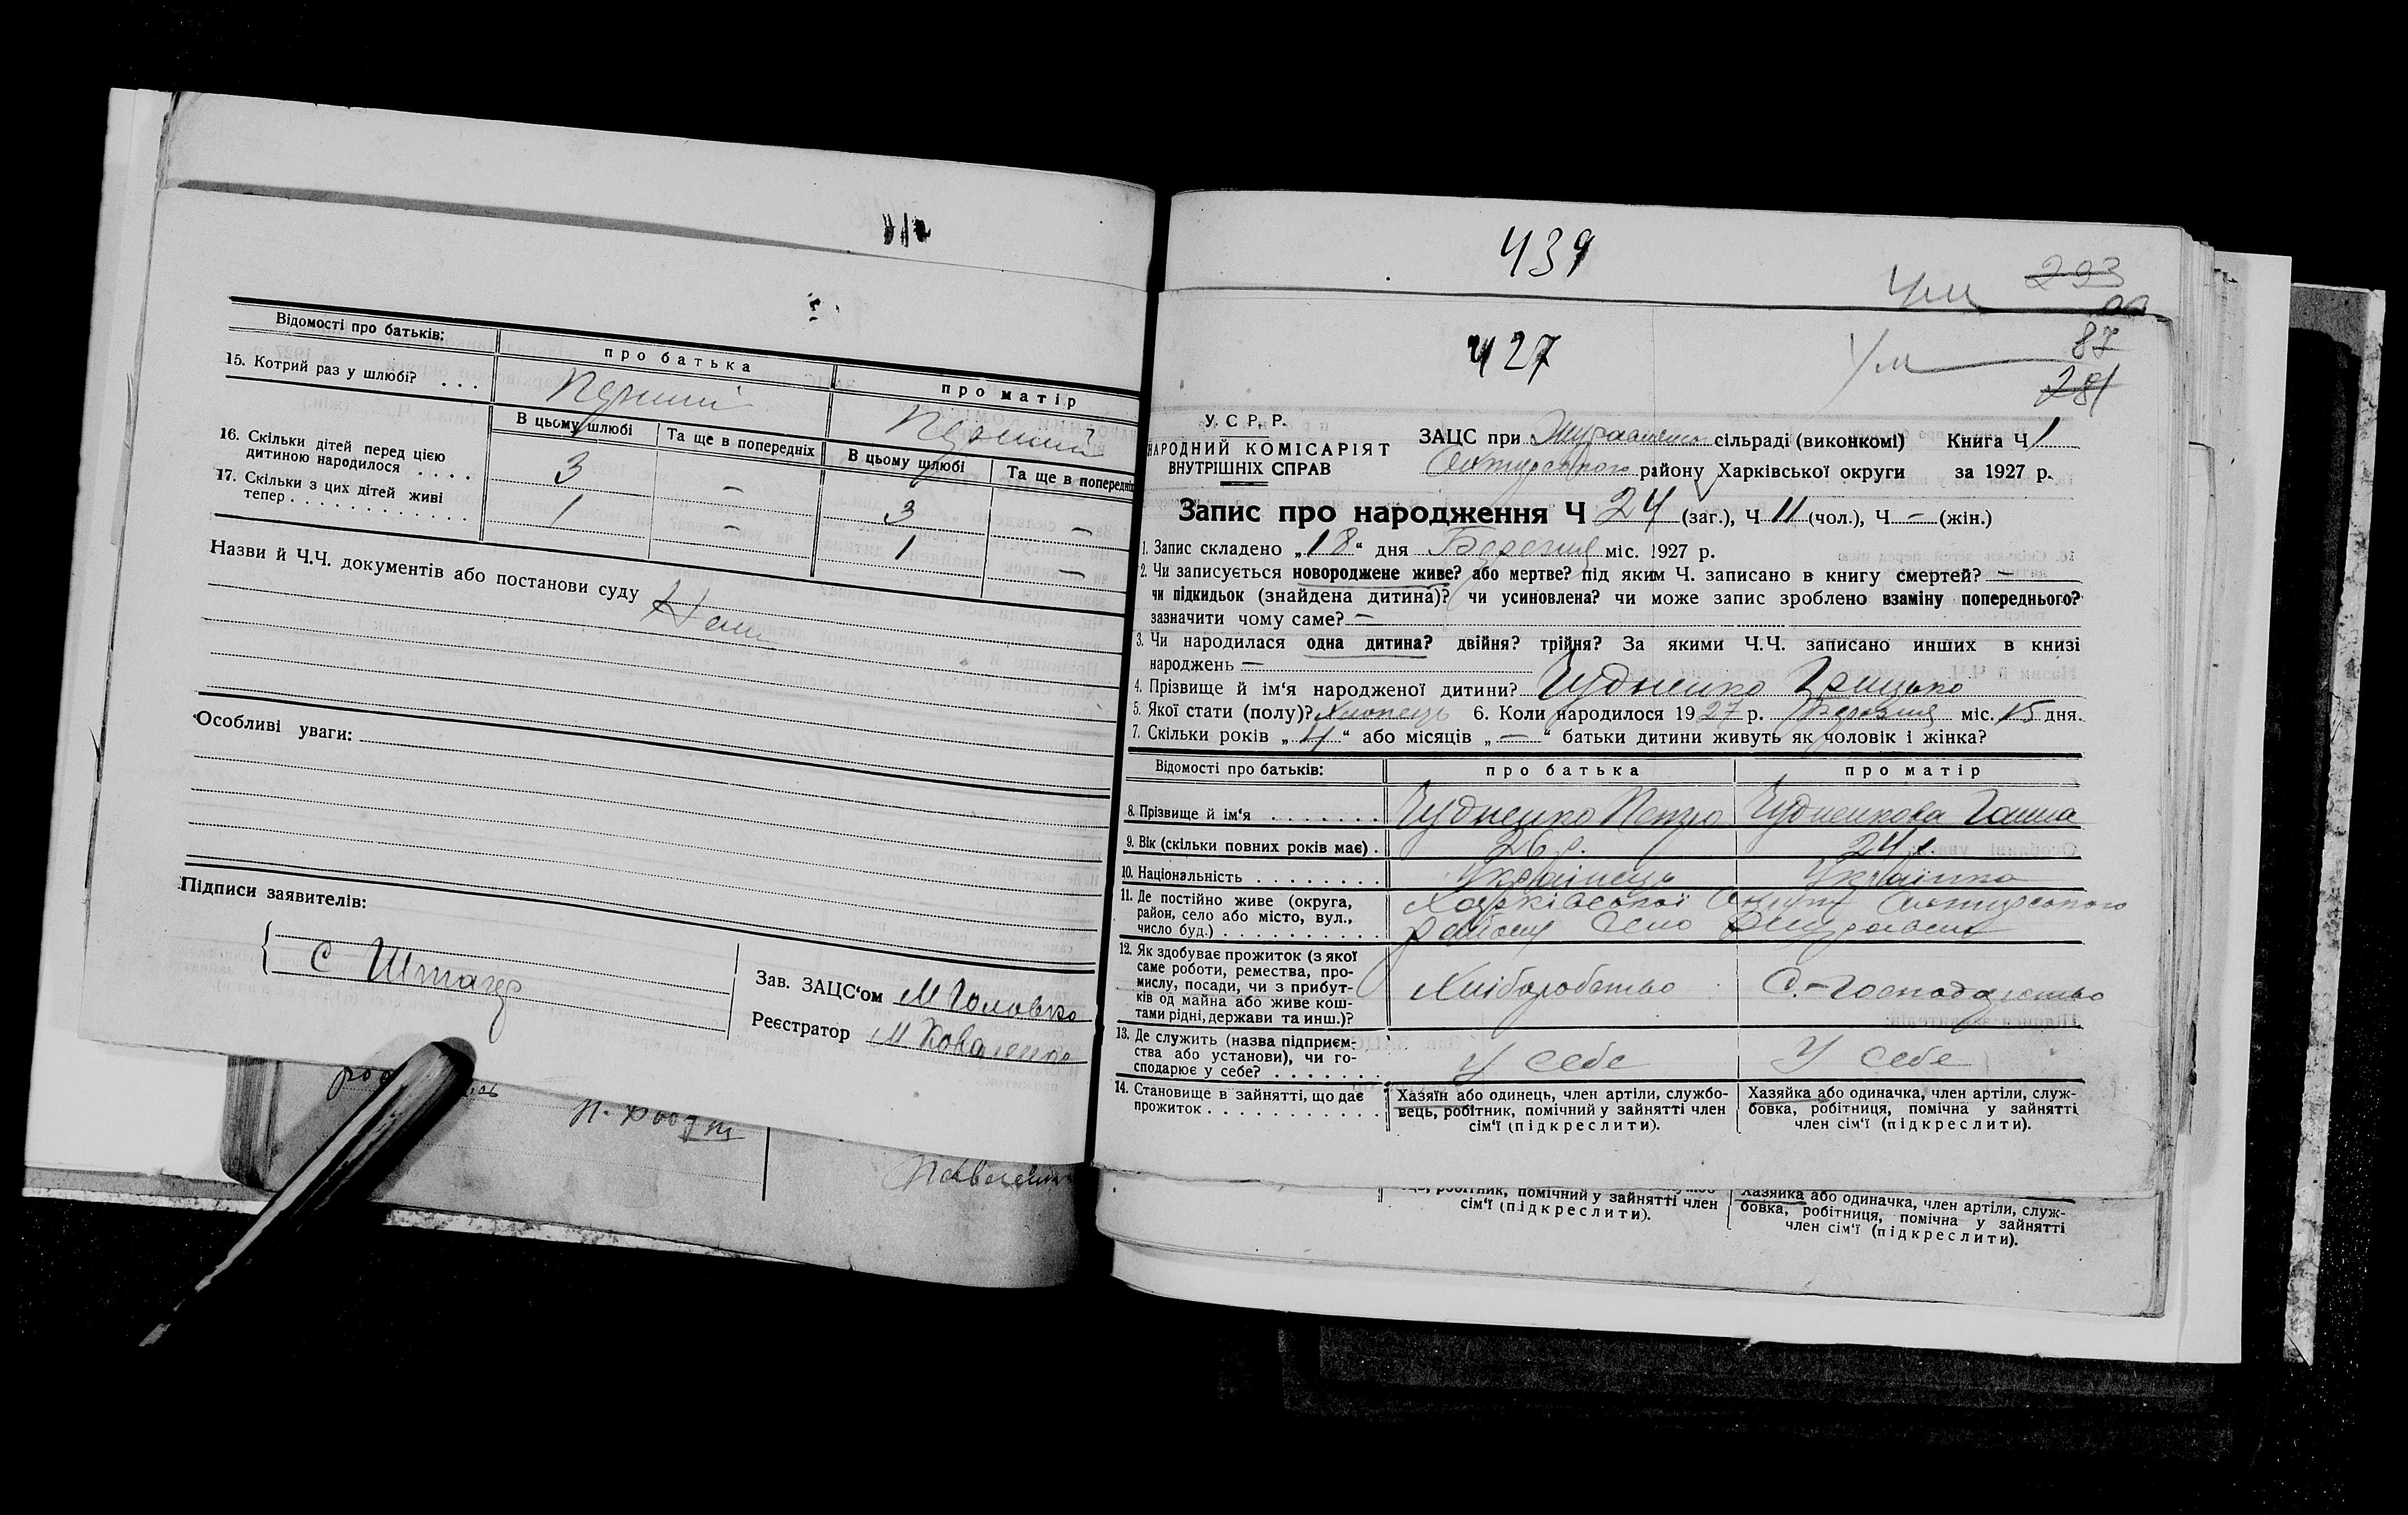 Відомості про батьків: про батька про матір
15. Котрий раз у шлюбі? . . . Перший Перший
В цьому шлюбі Та ще в попередніх В цьому шлюбі Та ще в попередніх
16. Скільки дітей перед цією
дитиною народилося . . . . 3 – 3 –
17. Скільки з цих дітей живі
тепер . . . . . . . . . . . . 1 – 1 –
Назви й Ч.Ч. документів або постанови суду
Особливі уваги:
Підписи заявителів:
Зав. ЗАЦС‘ом М Головко
Реєстратор М. Коваленко
439
293
427
87
281
У. С. Р. Р.
НАРОДНИЙ КОМІСАРІЯТ
ВНУТРІШНІХ СПРАВ
ЗАЦС при сільраді (виконкомі) Книга Ч 1
району Харківської округи за 1927 р.
Запис про народження Ч 24 (заг.), Ч 11 (чол.), Ч – (жін.)
1. Запис складено „18“ дня Березня міс. 1927 р.
2. Чи записується новороджене живе? або мертве? під яким Ч. записано в книгу смертей? –
чи підкидьок (знайдена дитина)? чи усиновлена? чи може запис зроблено взаміну попереднього?
зазначити чому саме? –
3. Чи народилася одна дитина? двійня? трійня? За якими Ч.Ч. записано инших в книзі
народжень –
4. Прізвище й ім‘я народженої дитини? Чудненко Грицько
5. Якої стати (полу)? Хлопець 6. Коли народилося 1927 р. Березня міс. 15 дня.
7. Скільки років „4“ або місяців „–“ батьки дитини живуть як чоловік і жінка?
Відомості про батьків: про батька про матір
8. Прізвище й ім‘я . . . . . . . Чудненко Петро Чудненкова Ганна
9. Вік (скільки повних років має) . 26 р. 24 р.
10. Національність . . . . . . . . Українець Українка
11. Де постійно живе (округа,
район, село або місто, вул.,
число буд.) . . . . . . . . . .
Харківської Округи
району Село
12. Як здобуває прожиток (з якої
саме роботи, ремества, про-
мислу, посади, чи з прибут-
ків од майна або живе кош-
тами рідні, держави та инш.)?
Хліборобство С.-Господарство
13. Де служить (назва підприєм-
ства або установи), чи го-
сподарює у себе? . . . . . . . У себе У себе
14. Становище в зайнятті, що дає
прожиток . . . . . . . . . . . .
Хазяїн або одинець, член артілі, службо-
вець, робітник, помічний у зайнятті член
сім‘ї (підкреслити).
Хазяйка або одиначка, член артілі, служ-
бовка, робітниця, помічна у зайнятті
член сім‘ї (підкреслити).
робітник, помічний у зайнятті член
сім‘ї (підкреслити).
Хазяйка або одиначка, член артілі, служ-
бовка, робітниця, помічна у зайнятті
член сім‘ї (підкреслити).